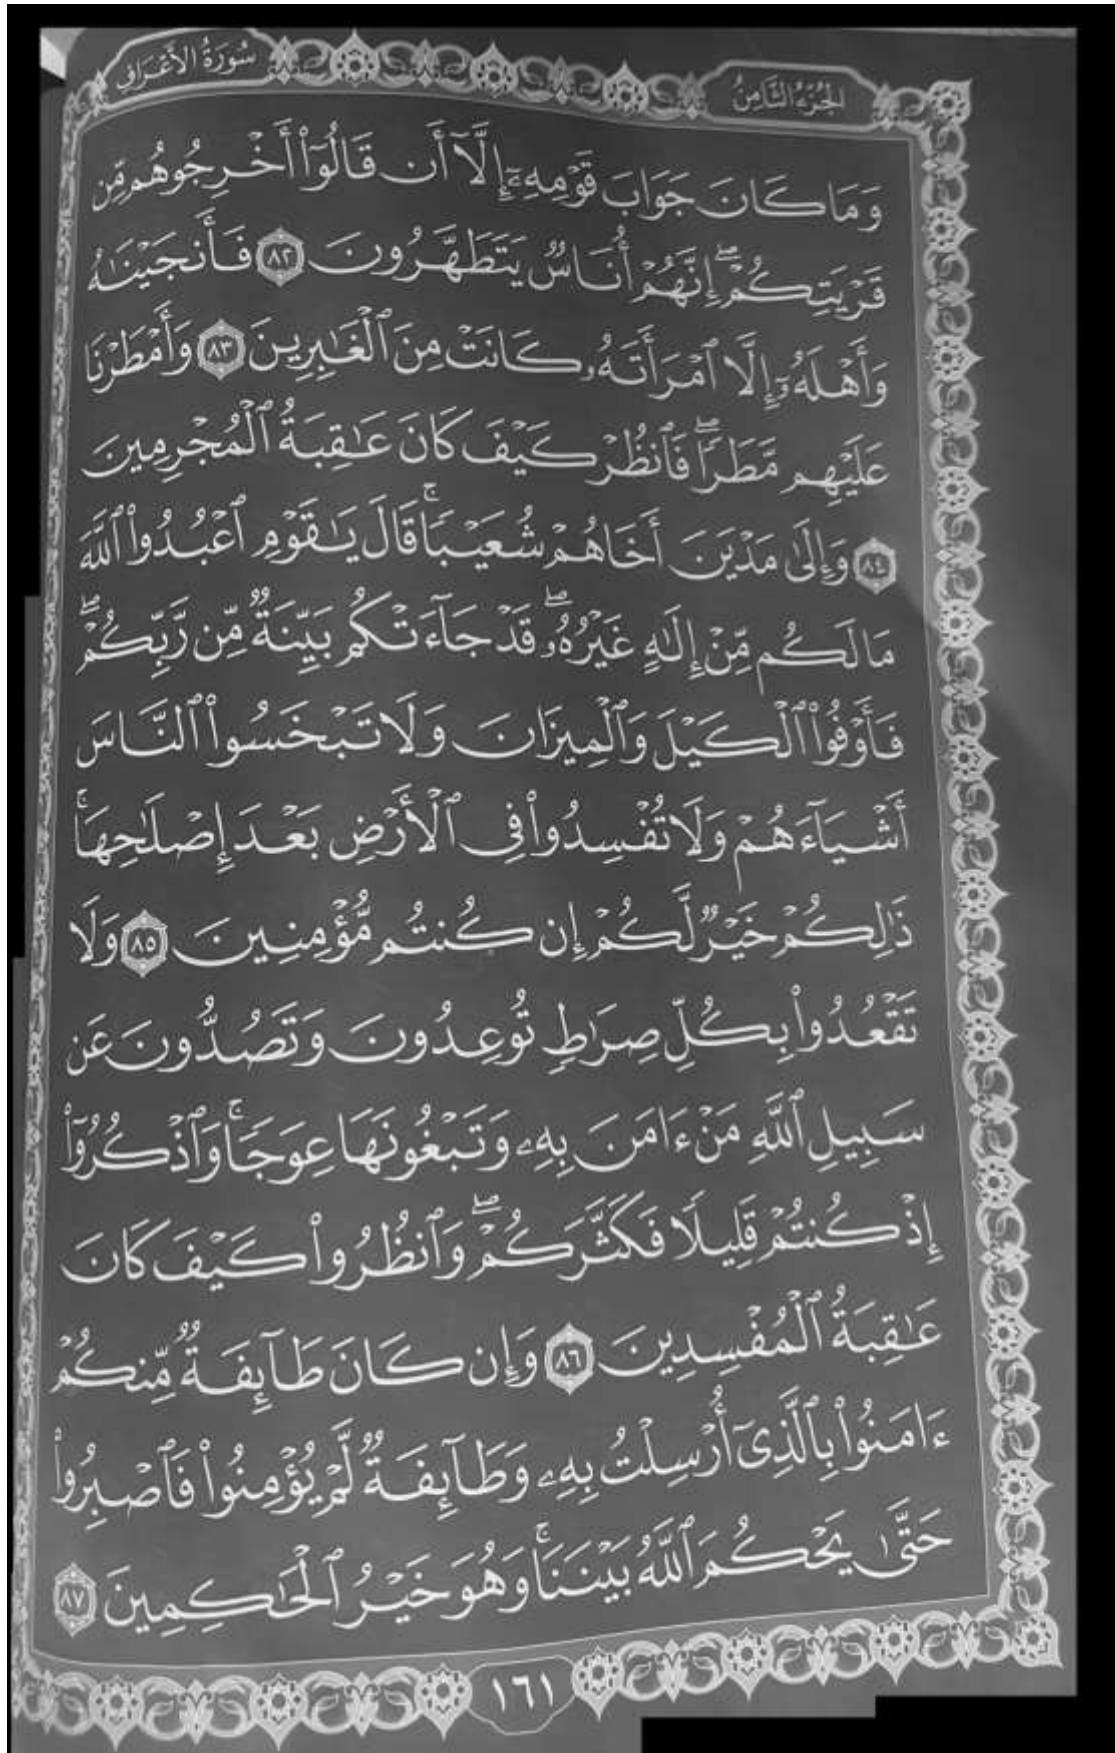 الجُزْءُ الثَّامِنُ
سُورَةُ الأَعْرَافِ
وَمَا كَانَ جَوَابَ قَوْمِهِۦٓ إِلَّآ أَن قَالُوٓا۟ أَخْرِجُوهُم مِّن
قَرْيَتِكُمْ ۖ إِنَّهُمْ أُنَاسٌ يَتَطَهَّرُونَ ٨٢ فَأَنجَيْنَـٰهُ
وَأَهْلَهُۥٓ إِلَّا ٱمْرَأَتَهُۥ كَانَتْ مِنَ ٱلْغَـٰبِرِينَ ٨٣ وَأَمْطَرْنَا
عَلَيْهِم مَّطَرًا ۖ فَٱنظُرْ كَيْفَ كَانَ عَـٰقِبَةُ ٱلْمُجْرِمِينَ
٨٤ وَإِلَىٰ مَدْيَنَ أَخَاهُمْ شُعَيْبًا ۚ قَالَ يَـٰقَوْمِ ٱعْبُدُوا۟ ٱللَّهَ
مَا لَكُم مِّنْ إِلَـٰهٍ غَيْرُهُۥ ۖ قَدْ جَآءَتْكُم بَيِّنَةٌ مِّن رَّبِّكُمْ ۖ
فَأَوْفُوا۟ ٱلْكَيْلَ وَٱلْمِيزَانَ وَلَا تَبْخَسُوا۟ ٱلنَّاسَ
أَشْيَآءَهُمْ وَلَا تُفْسِدُوا۟ فِى ٱلْأَرْضِ بَعْدَ إِصْلَـٰحِهَا ۚ
ذَٰلِكُمْ خَيْرٌ لَّكُمْ إِن كُنتُم مُّؤْمِنِينَ ٨٥ وَلَا
تَقْعُدُوا۟ بِكُلِّ صِرَٰطٍ تُوعِدُونَ وَتَصُدُّونَ عَن
سَبِيلِ ٱللَّهِ مَنْ ءَامَنَ بِهِۦ وَتَبْغُونَهَا عِوَجًا ۚ وَٱذْكُرُوٓا۟
إِذْ كُنتُمْ قَلِيلًا فَكَثَّرَكُمْ ۖ وَٱنظُرُوا۟ كَيْفَ كَانَ
عَـٰقِبَةُ ٱلْمُفْسِدِينَ ٨٦ وَإِن كَانَ طَآئِفَةٌ مِّنكُمْ
ءَامَنُوا۟ بِٱلَّذِىٓ أُرْسِلْتُ بِهِۦ وَطَآئِفَةٌ لَّمْ يُؤْمِنُوا۟ فَٱصْبِرُوا۟
حَتَّىٰ يَحْكُمَ ٱللَّهُ بَيْنَنَا ۚ وَهُوَ خَيْرُ ٱلْحَـٰكِمِينَ ٨٧
١٦١